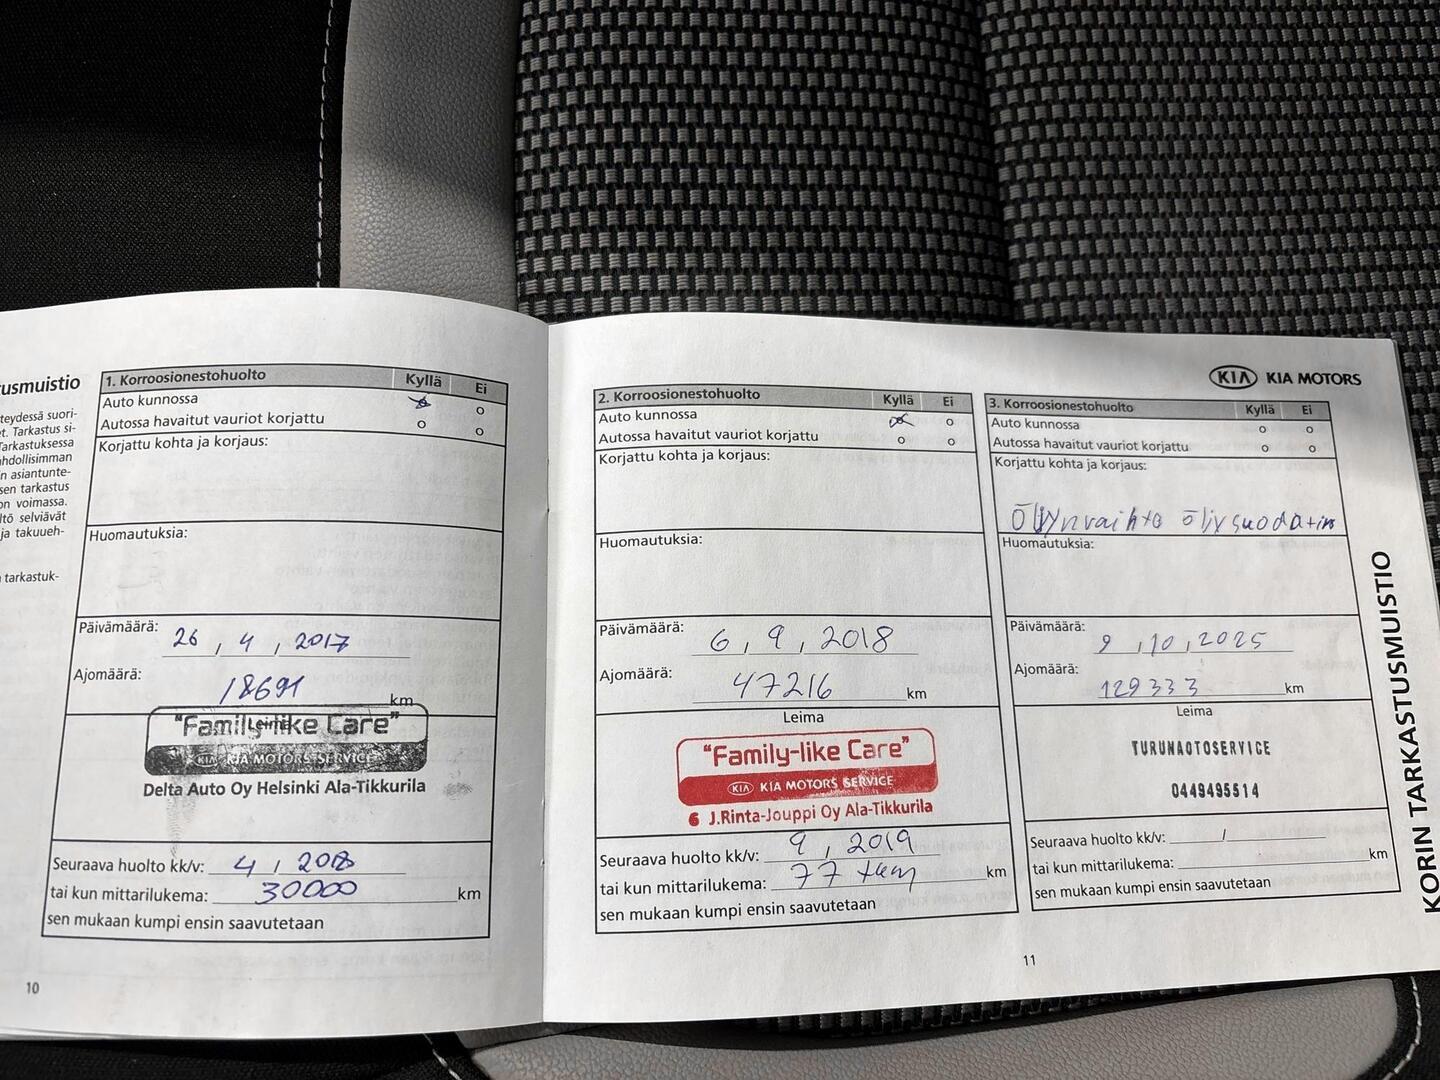 usmuistio
teydessä suori-
et. Tarkastus si-
Tarkastuksessa
ahdollisimman
n asiantunte-
sen tarkastus
on voimassa.
ltö selviävät
ja takuueh-
tarkastuk-
1. Korroosionestohuolto Kyllä Ei
Auto kunnossa o
Autossa havaitut vauriot korjattu o o
Korjattu kohta ja korjaus:
Huomautuksia:
Päivämäärä: 26 , 4 , 2017
Ajomäärä: 18691 km
Leima
"Family-like Care"
KIA KIA MOTORS SERVICE
Delta Auto Oy Helsinki Ala-Tikkurila
Seuraava huolto kk/v: 4 , 2018
tai kun mittarilukema: 30000 km
sen mukaan kumpi ensin saavutetaan
10
2. Korroosionestohuolto Kyllä Ei
Auto kunnossa o
Autossa havaitut vauriot korjattu o o
Korjattu kohta ja korjaus:
Huomautuksia:
Päivämäärä: 6 , 9 , 2018
Ajomäärä: 47216 km
Leima
"Family-like Care"
KIA KIA MOTORS SERVICE
6 J.Rinta-Jouppi Oy Ala-Tikkurila
Seuraava huolto kk/v: 9 , 2019
tai kun mittarilukema: 77 tkm km
sen mukaan kumpi ensin saavutetaan
KIA KIA MOTORS
3. Korroosionestohuolto Kyllä Ei
Auto kunnossa o o
Autossa havaitut vauriot korjattu o o
Korjattu kohta ja korjaus:
Öljynvaihto öljysuodatin
Huomautuksia:
Päivämäärä: 9 , 10 , 2025
Ajomäärä: 129333 km
Leima
TURUNAOTOSERVICE
0449495514
Seuraava huolto kk/v: /
tai kun mittarilukema: km
sen mukaan kumpi ensin saavutetaan
11
KORIN TARKASTUSMUISTIO